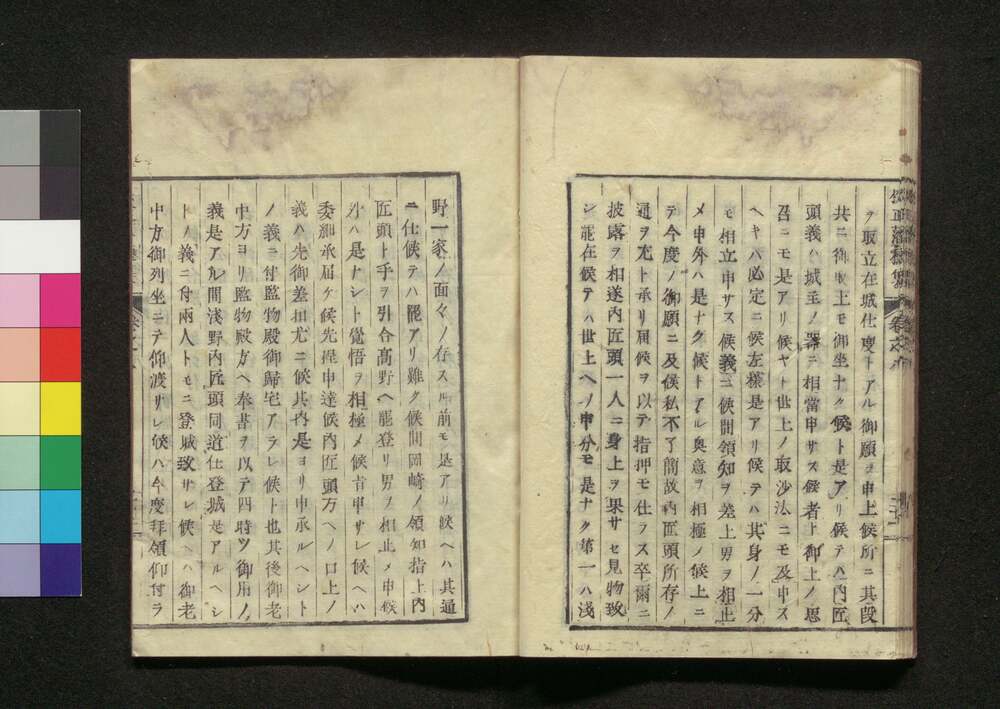 ヲ取立在城仕度トアル御願ヲ申上候所ニ其段
共ニ御取上モ御坐ナク候ト是アリ候テハ内匠
頭義ハ城主ノ器ニ相當申サス候者ト御上ノ思
召ニモ是アリ候ヤト世上ノ取沙汰ニモ及申ス
ヘキハ必定ニ候左樣是アリ候テハ其身ノ一分
モ相立申サス候義ニ候間領知ヲ差上男ヲ相止
メ申外ハ是ナク候トアル奥意ヲ相極メ候上ニ
テ今度ノ御願ニ及候私不了簡故内匠頭所存ノ
通ヲ尤ト承リ届候ヲ以テ指押モ仕ラス卒爾ニ
披露ヲ相遂内匠頭一人ニ身上ヲ果サセ見物致
シ罷在候テハ世上ヘノ申分モ是ナク第一ハ淺
野一家ノ面々ノ存スル前モ是アリ候ヘハ其通
ニ仕候テハ罷アリ難ク候間岡崎ノ領知指上内
匠頭ト手ヲ引合高野ヘ罷登リ男ヲ相止メ申候
外ハ是ナシト覺悟ヲ相極メ候旨申サレ候ヘハ
委細承届ケ候先程申達候内匠頭方ヘノ口上ノ
義ハ先御差扣尤ニ候其内是ヨリ申承ルヘシト
ノ義ニ付監物殿御歸宅アラレ候ト也其後御老
中方ヨリ監物殿方ヘ奉書ヲ以テ四時ツ御用ノ
義是アル間淺野内匠頭同道仕登城是アルヘシ
トノ義ニ付兩人トモニ登城致サレ候ヘハ御老
中方御列坐ニテ仰渡サレ候ハ今度拜領仰付ラ